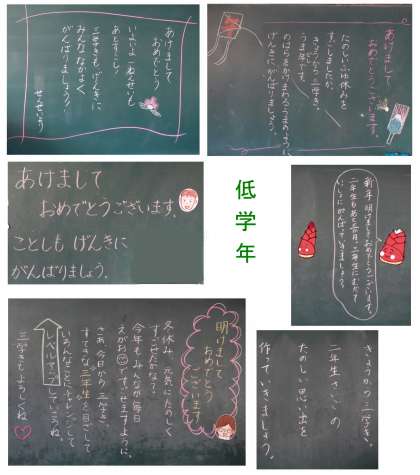 あけまして
おめでとう
いよいよ一ねんせいも
あとすこし！
三学きも、げんきに
みんななかよく
がんばりましょう！
せんせいより
あけまして
おめでとうございます。
たのしいふゆ休みを
すごしましたか。
きょうから三学き。
うま年です。
のはらをかけまわるうまのように、
げんきに、がんばりましょう。
あけまして
おめでとうございます。
ことしも げんきに
がんばりましょう。
低学年
新年 明けましておめでとうございます。
二年生もあと
三年生にむかって
いっしょにがんばっていきましょう。
明けまして
おめでとう
ございます
冬休み、元気にたのしく
すごせたかな？
今年もみんなが毎日
えがおですごせますように。
さあ、今日から三学き
すてきな三年生を目ざして
いろんなことにチャレンジして
レベルアップしていこうね。
三学きもよろしくね
きょうから三学き。
二年生さいごの
たのしい思い出を
作っていきましょう。